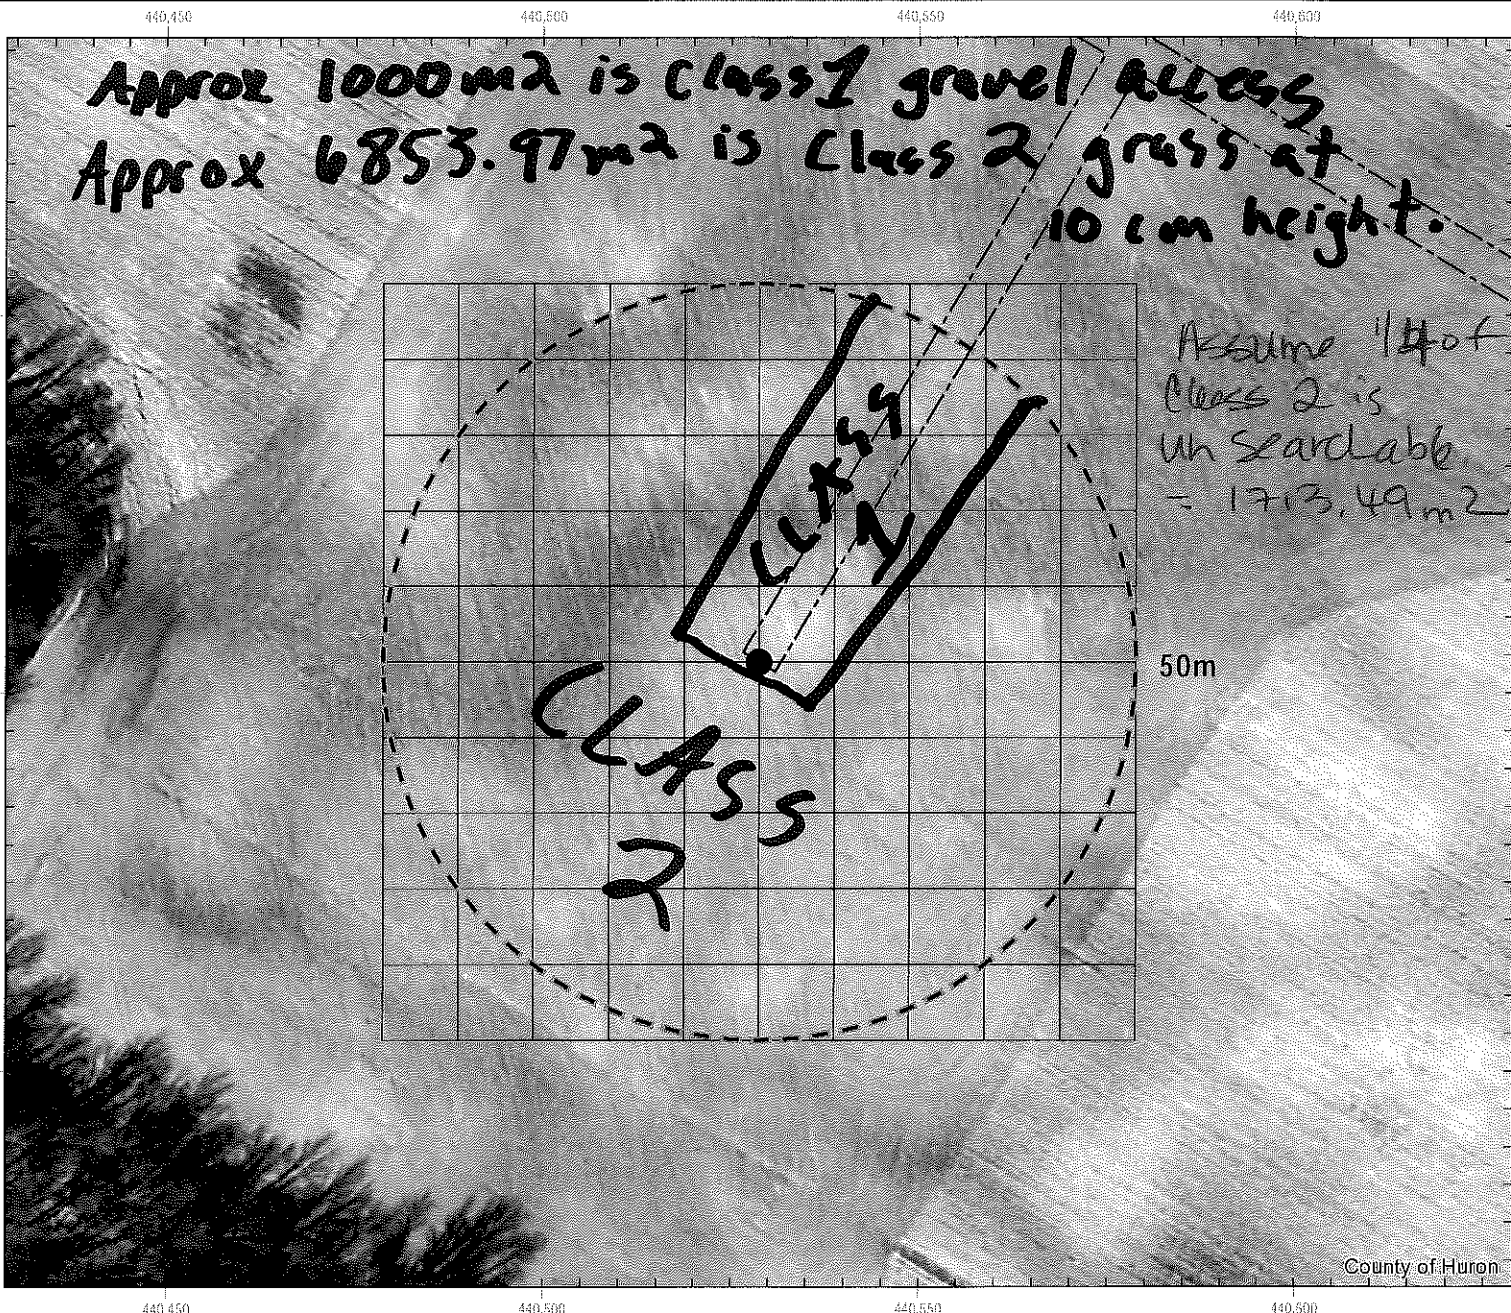 440,450 440,500 440,550 440,600
Approx 1000m2 is Class 1 gravel access
Approx 6853.97m2 is Class 2 grass at
10 cm height.
Assume 1/4 of
Class 2 is
unsearchable
= 1713.49m2
CLASS
1
50m
CLASS
2
County of Huron
440,450 440,500 440,550 440,600